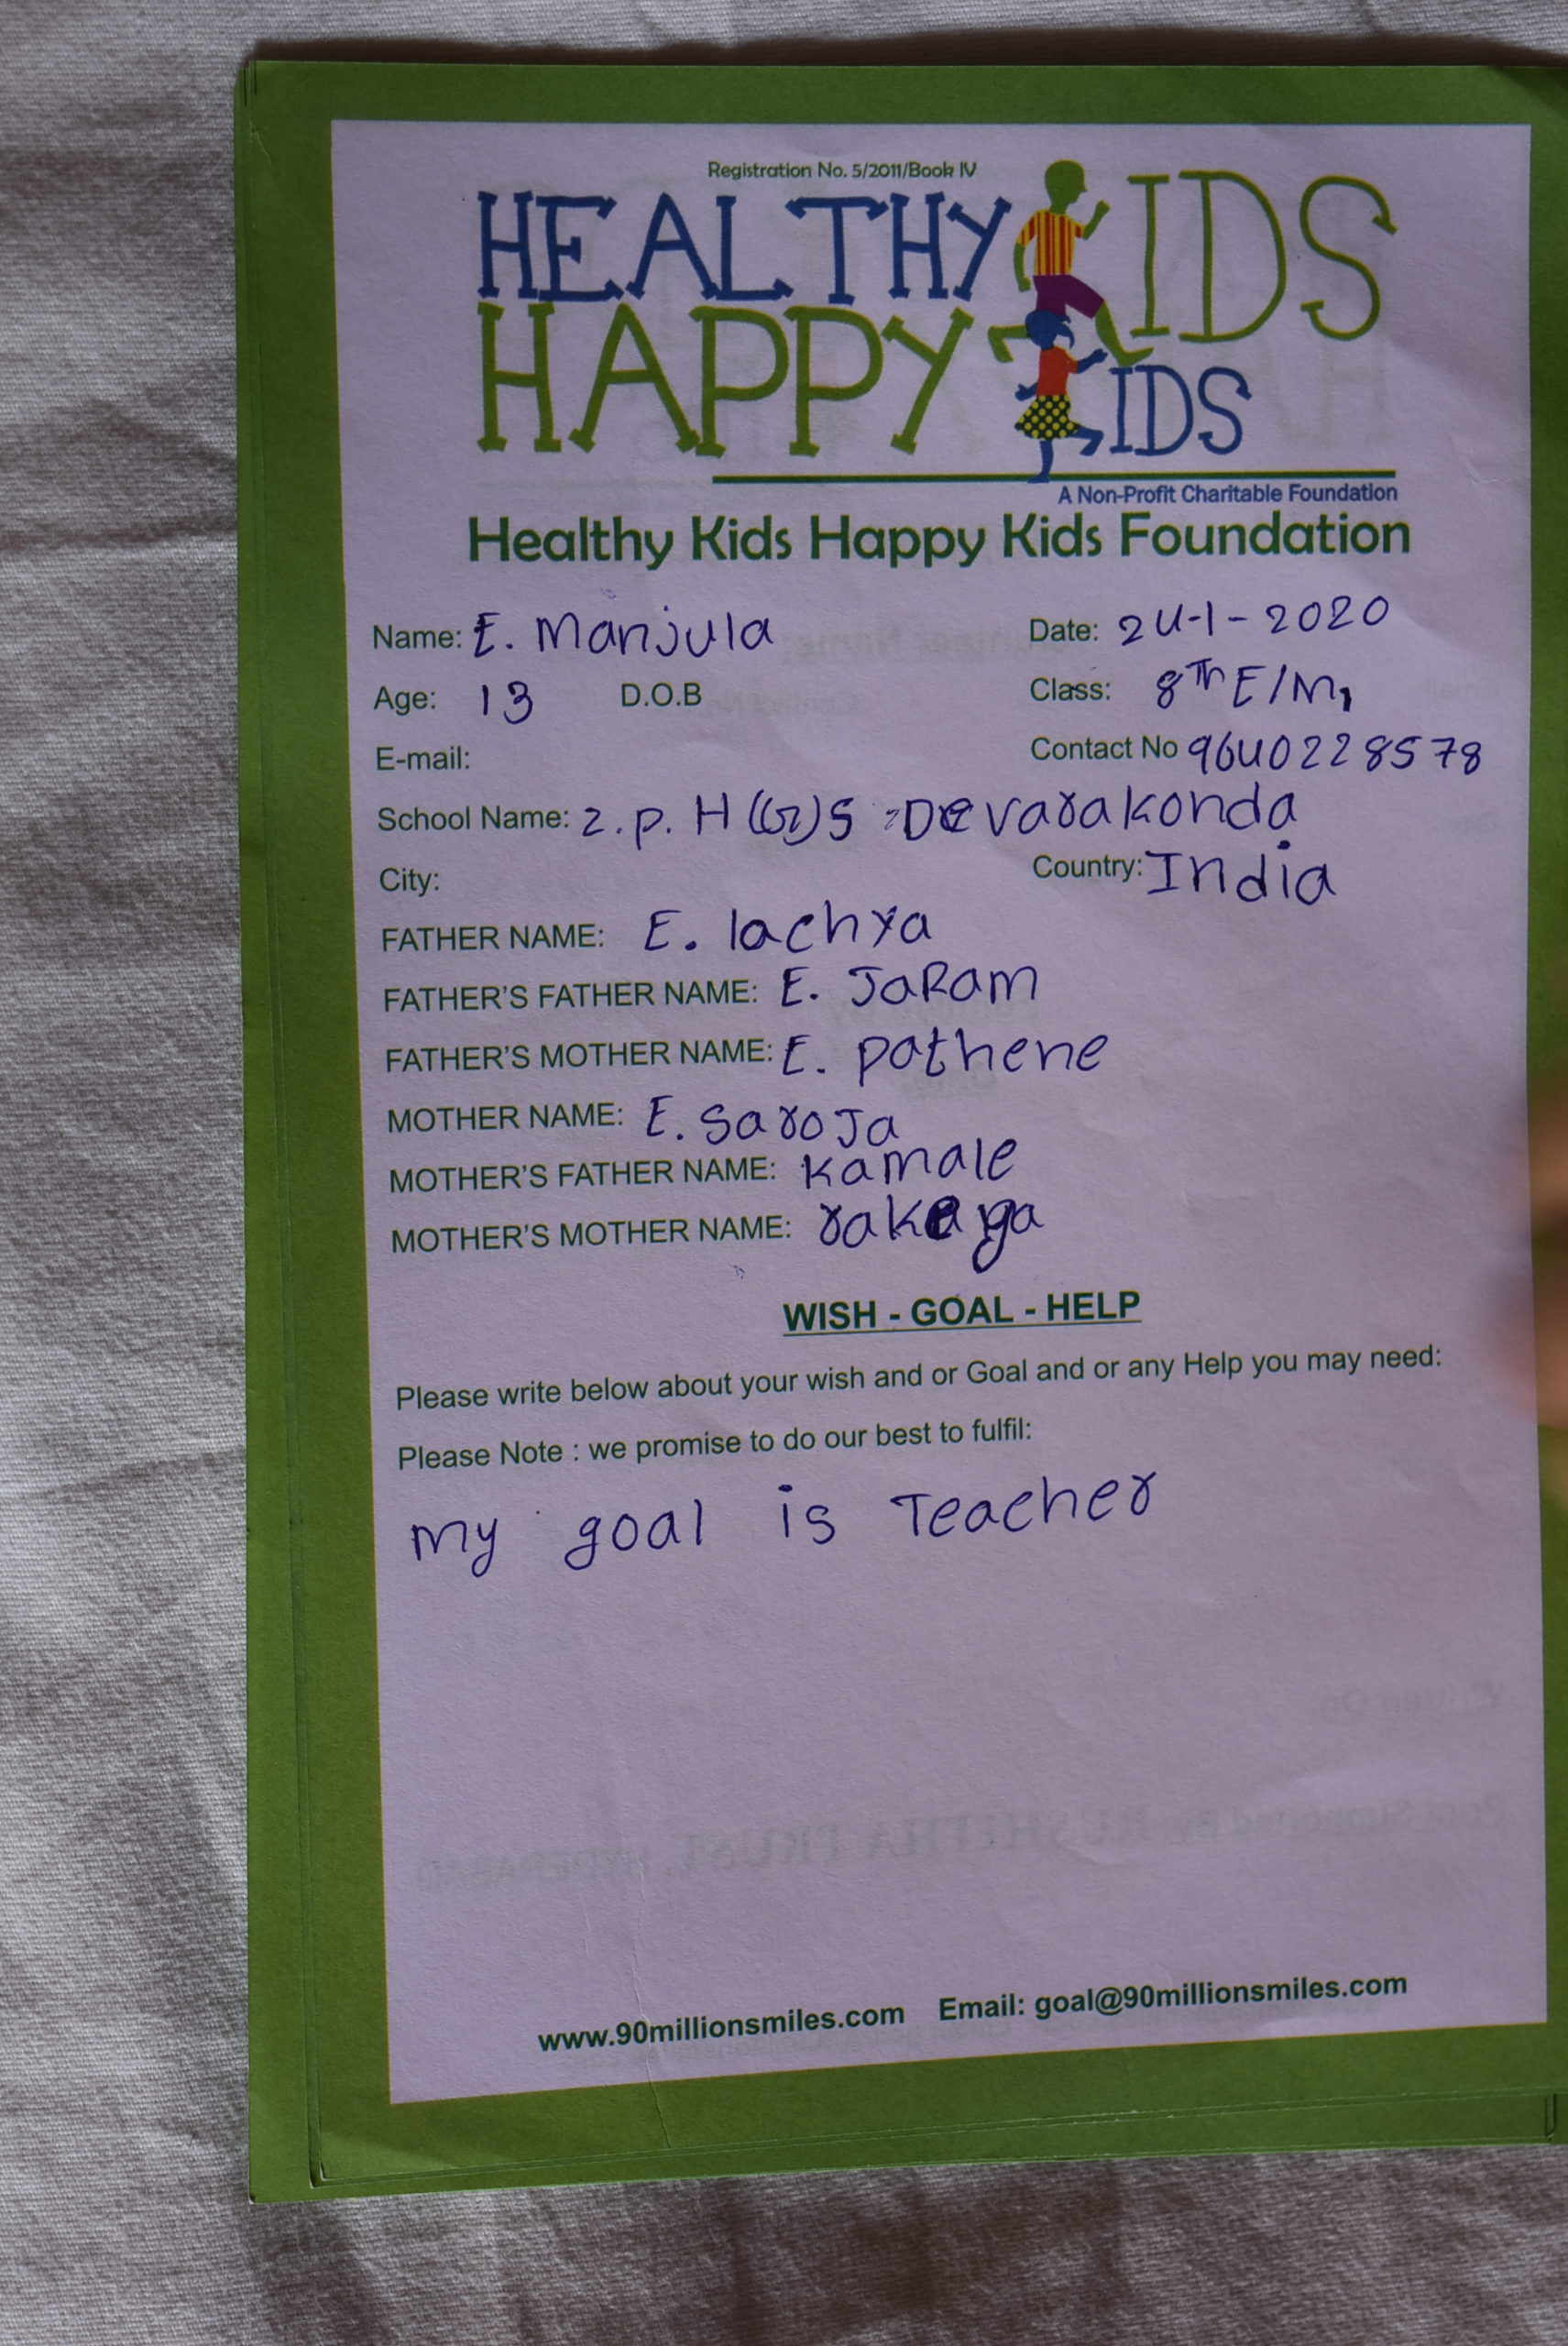 Registration No. 5/2011/Book IV
HEALTHY KIDS
HAPPY KIDS
A Non-Profit Charitable Foundation
Healthy Kids Happy Kids Foundation
Name: E. Manjula Date: 24-1-2020
Age: 13 D.O.B Class: 8Th E/M,
E-mail: Contact No 9640228578
School Name: Z.P.H(G)S Devarakonda
City: Country: India
FATHER NAME: E. lachya
FATHER'S FATHER NAME: E. JaRam
FATHER'S MOTHER NAME: E. Pothene
MOTHER NAME: E. SaroJa
MOTHER'S FATHER NAME: Kamale
MOTHER'S MOTHER NAME:
WISH - GOAL - HELP
Please write below about your wish and or Goal and or any Help you may need:
Please Note : we promise to do our best to fulfil:
my goal is Teacher
www.90millionsmiles.com Email: goal@90millionsmiles.com